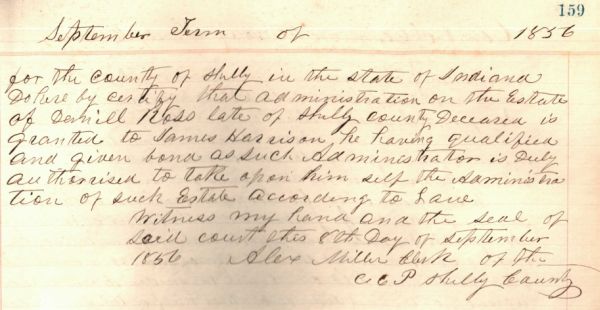 159
September Term of 1856
for the county of Shelly in the state of Indiana
Do here by certify that administration on the Estate
of Ross late of Shelly county Deceased is
granted to James Harrison he having qualified
and given bond as such Administrator is Duly
authorised to take upon him self the Administra
tion of such Estate according to Law
Witness my hand and the seal of
Said court this 8th Day of September
1856 Alex Miller Clerk of the
C C P Shelly County